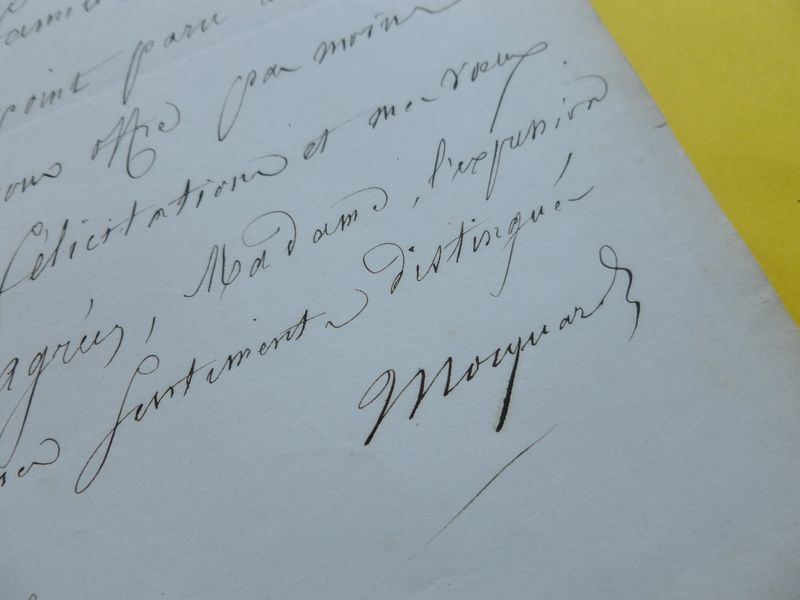 point paru
offre pas moins
félicitations et mes vœux.
agréez, Madame, l'expression
sentiments distingués
Mocquard